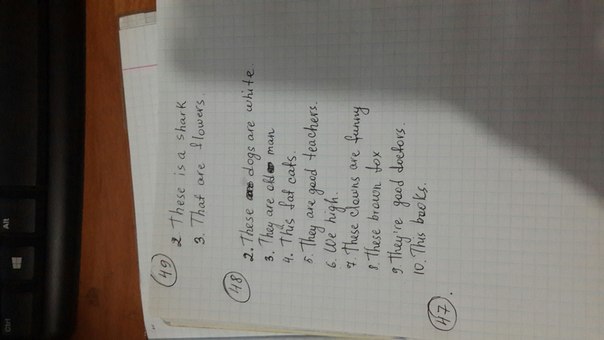 49
2. These is a shark
3. That are flowers.
48
2. These dogs are white.
3. They are old man
4. This fat cats.
5. They are good teachers.
6. We high.
7. These clowns are funny
8 these brown fox
9. They're good doctors.
10. This books.
47.
Alt
Ctrl